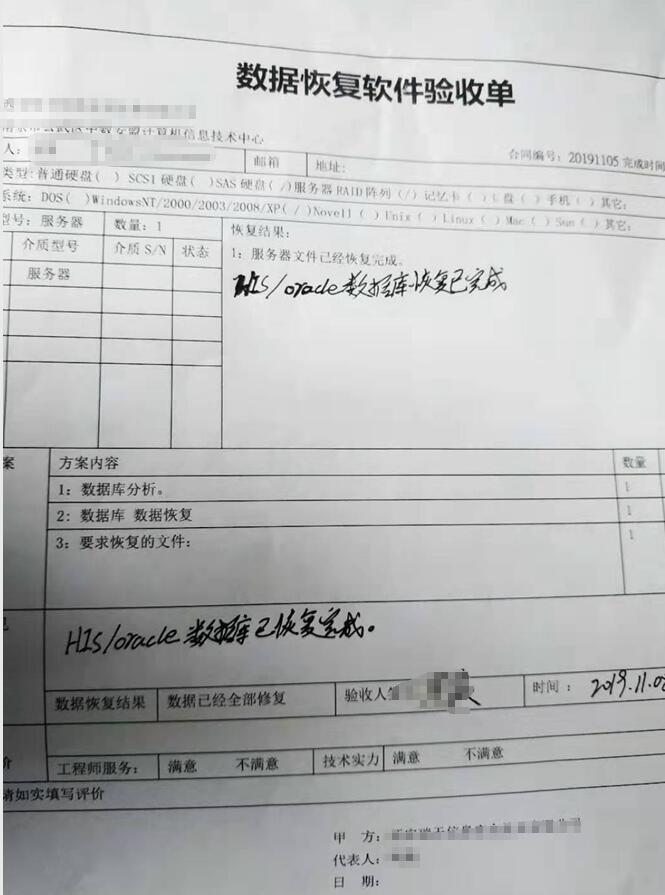 数据恢复软件验收单
计算机信息技术中心
人:
邮箱
地址:
合同编号: 20191105 完成时间
类型:普通硬盘( ) SCSI 硬盘( )SAS 硬盘(/)服务器 RAID 阵列(/) 记忆卡( ) U 盘( ) 手机( ) 其它:
系统: DOS( )WindowsNT/2000/2003/2008/XP(/)Novell ( ) Unix( ) Linux( ) Mac( ) Sun( ) 其它:
型号: 服务器
数量: 1
介质型号
介质 S/N
状态
服务器
恢复结果:
1: 服务器文件已经恢复完成。
HIS/oracle数据库恢复已完成
案
方案内容
数量
1: 数据库分析。
1
2: 数据库 数据恢复
1
3: 要求恢复的文件:
1
HIS/oracle 数据库已恢复完成。
数据恢复结果
数据已经全部修复
验收人
时间:
2019.11.0
价
工程师服务:
满意 不满意
技术实力
满意 不满意
请如实填写评价
甲 方:
代表人:
日 期: